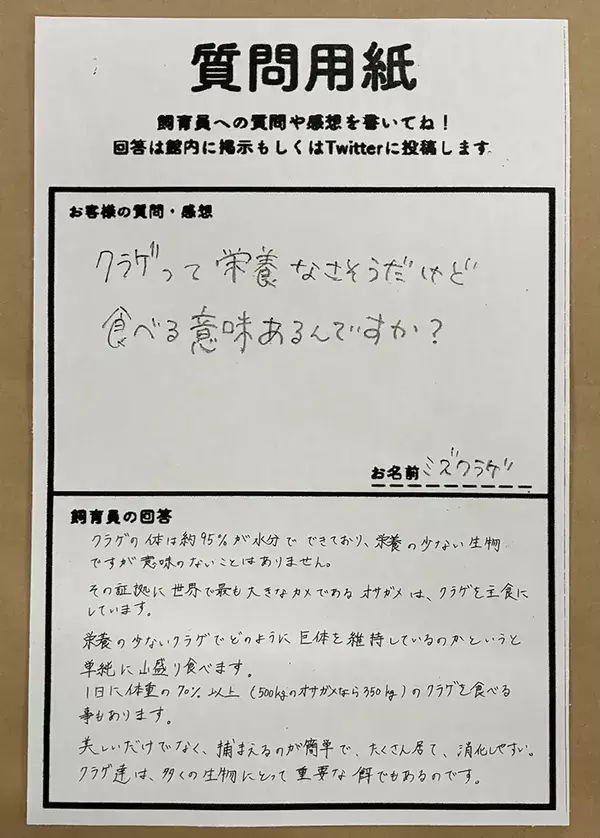 質問用紙
飼育員への質問や感想を書いてね！
回答は館内に掲示もしくはTwitterに投稿します
お客様の質問・感想
クラゲって栄養なさそうだけど
食べる意味あるんですか？
お名前 ミズクラゲ
飼育員の回答
クラゲの体は約95%が水分でできており、栄養の少ない生物
ですが意味のないことはありません。
その証拠に世界で最も大きなカメであるオサガメは、クラゲを主食に
しています。
栄養の少ないクラゲでどのように巨体を維持しているのかというと
単純に山盛り食べます。
1日に体重の70%以上(500kgのオサガメなら350kg)のクラゲを食べる
事もあります。
美しいだけでなく、捕まえるのが簡単で、たくさん居て、消化しやすい。
クラゲ達は、多くの生物にとって重要な餌でもあるのです。